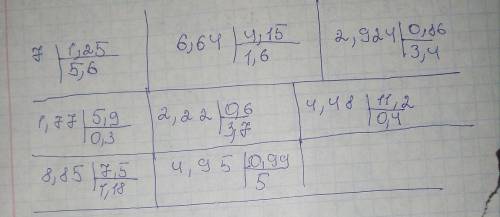 7 | 1,25 6,64 | 4,15 2,924 | 0,86
5,6 1,6 3,4
1,77 | 5,9 2,22 | 0,6 4,48 | 11,2
0,3 3,7 0,4
8,85 | 7,5 4,95 | 0,99
1,18 5